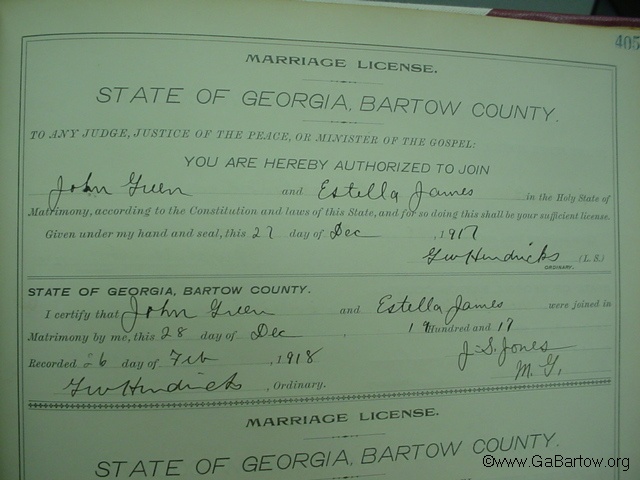 405
MARRIAGE LICENSE.
STATE OF GEORGIA, BARTOW COUNTY.
TO ANY JUDGE, JUSTICE OF THE PEACE, OR MINISTER OF THE GOSPEL:
YOU ARE HEREBY AUTHORIZED TO JOIN
John Green and Estella James in the Holy State of
Matrimony, according to the Constitution and laws of this State, and for so doing this shall be your sufficient license.
Given under my hand and seal, this 27 day of Dec , 1917
GW Hendricks (L. S.)
ORDINARY.
STATE OF GEORGIA, BARTOW COUNTY.
I certify that John Green and Estella James were joined in
Matrimony by me, this 28 day of Dec , 19 Hundred and 17
J. S. Jones
M. G.
Recorded 6 day of Feb , 1918
GW Hendricks , Ordinary.
MARRIAGE LICENSE.
STATE OF GEORGIA, BARTOW COUNTY.
©www.GaBartow.org